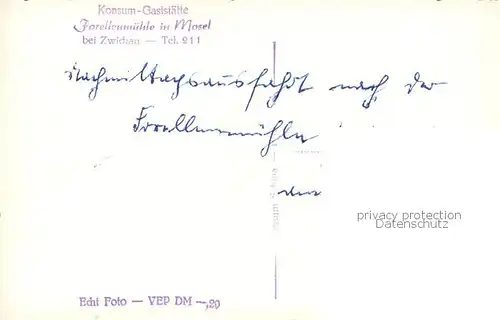 Konsum-Gaststätte
Forellenmühle in Mosel
bei Zwickau — Tel. 211
Nachmittagsausfahrt nach der
Forellenmühle
den
privacy protection
Datenschutz
Echt Foto — VEP DM —,20